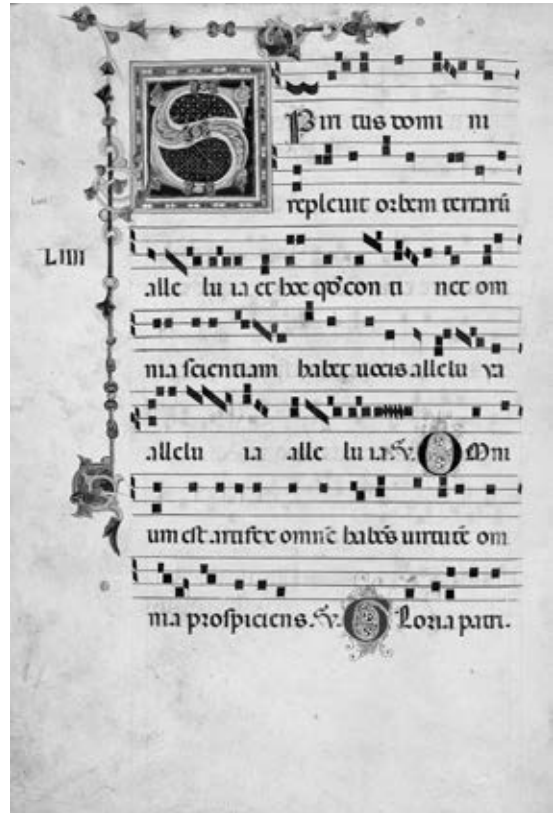 SPiri tus domi ni
repleuit orbem terrarū
LIIII
alle lu ia et hoc qd̕ con ti net om
nia scientiam habet uocis allelu ya
allelu ia alle lu ia. V. OMni
um est artifex omnē habēs uirtutē om
nia prospiciens. V. GLoria patri.